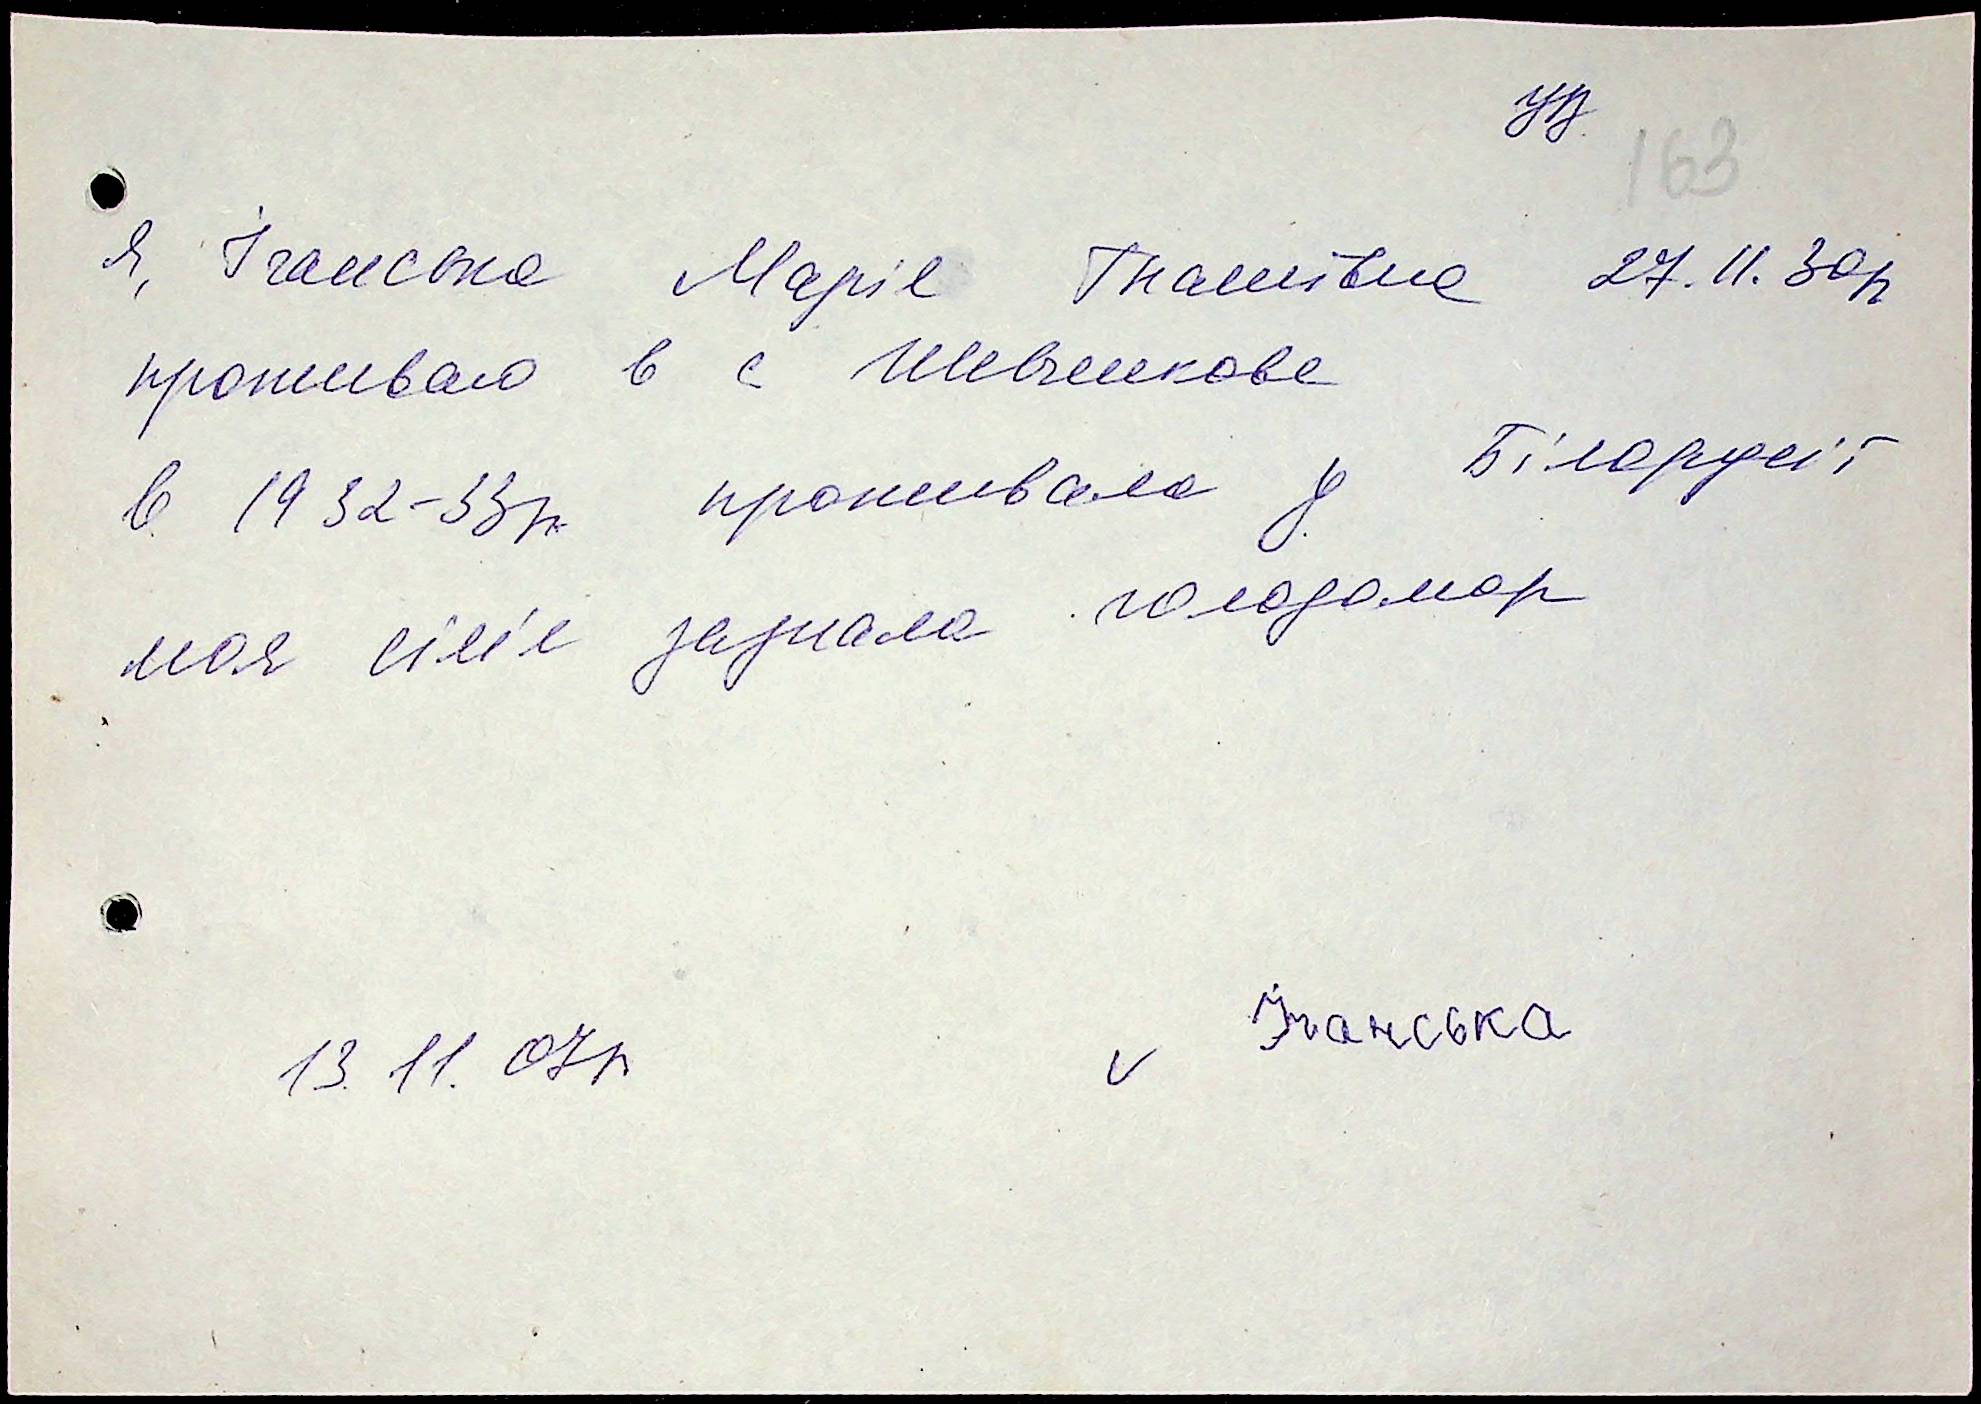 163
Я, Їганська Марія Гнатівна 27.11.30р
проживаю в с Шевченкове
в 1932-33р. проживала у Білорусії
моя сім'я зазнала голодомор
13.11.07р v Їганська